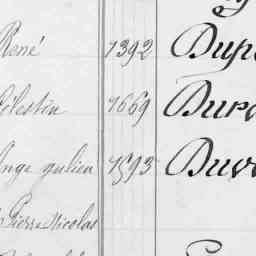 René 1392 Dup
Célestin 1669 Dura
Ange julien 1593 Duv
Pierre Nicolas